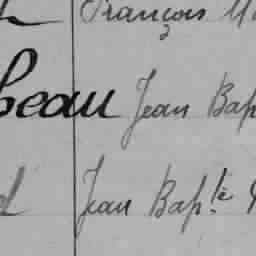 François
beau Jean Bap
Jean Bap.te